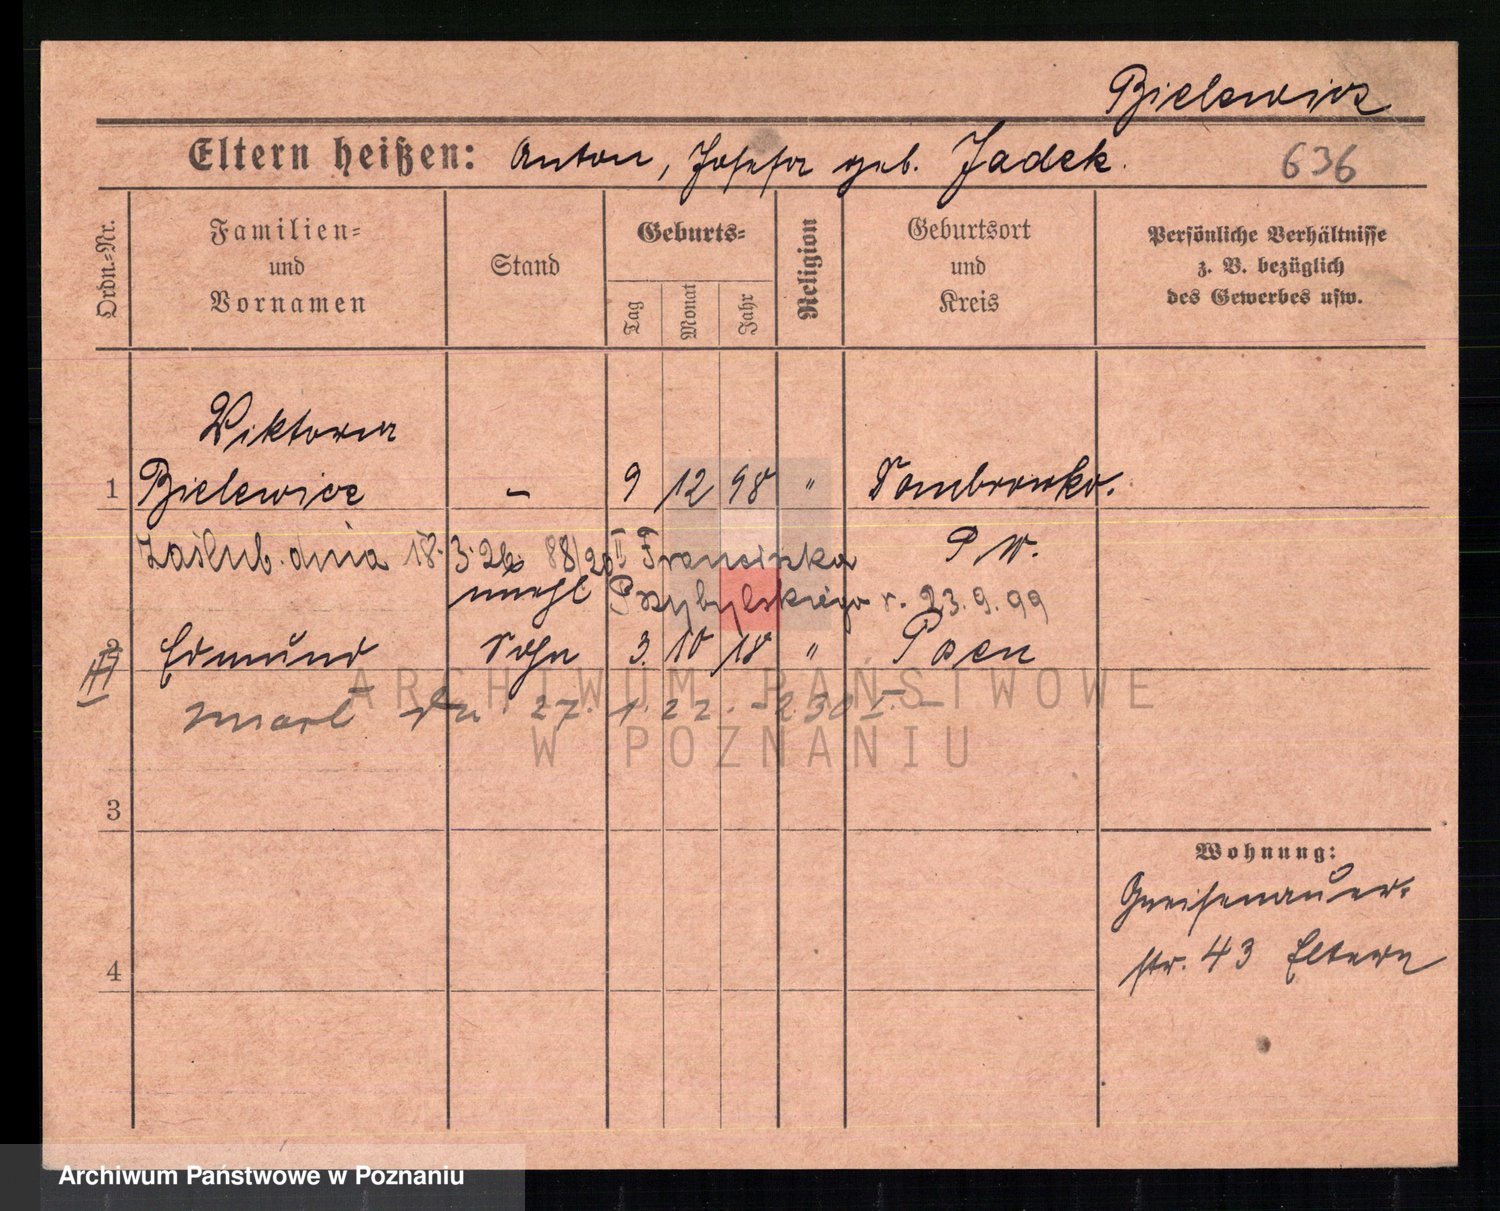 Bielewicz
Eltern heißen: Anton, Josefa geb. Jadek.
636
Ordn.-Nr.
Familien-
und
Vornamen
Stand
Geburts-
Tag
Monat
Jahr
Religion
Geburtsort
und
Kreis
Persönliche Verhältnisse
z. B. bezüglich
des Gewerbes usw.
Viktoria
1 Bielewicz - 9 12 98 " Dombrowka.
Zaślub. dnia 18. 3. 26 88/26 II Franciszka P W.
unehl Przybylskiego r. 23.9.99
2 Edmund Sohn 3. 10 18 " Posen
zmarł dn. 27. 1. 22. - 230
3
4
Wohnung:
Gneisenauer-
str. 43 Eltern
ARCHIWUM PAŃSTWOWE
W POZNANIU
Archiwum Państwowe w Poznaniu